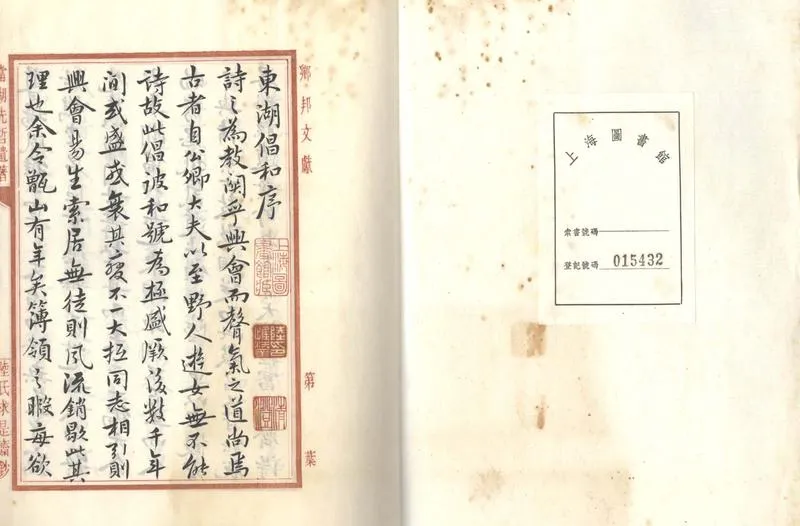 上海圖書館
索書號碼
登記號碼 015432
鄉邦文獻
第 葉
東湖倡和序
詩之為教關乎興會而聲氣之道尚焉
古者自公卿大夫以至野人遊女無不能
詩故此倡彼和號為極盛厥後數千年
間或盛或衰其變不一大抵同志相引則
興會易生索居無徒則風流銷歇此其
理也余令甑山有年矣簿領之暇每欲
當湖先哲遺著
陸氏求是齋鈔